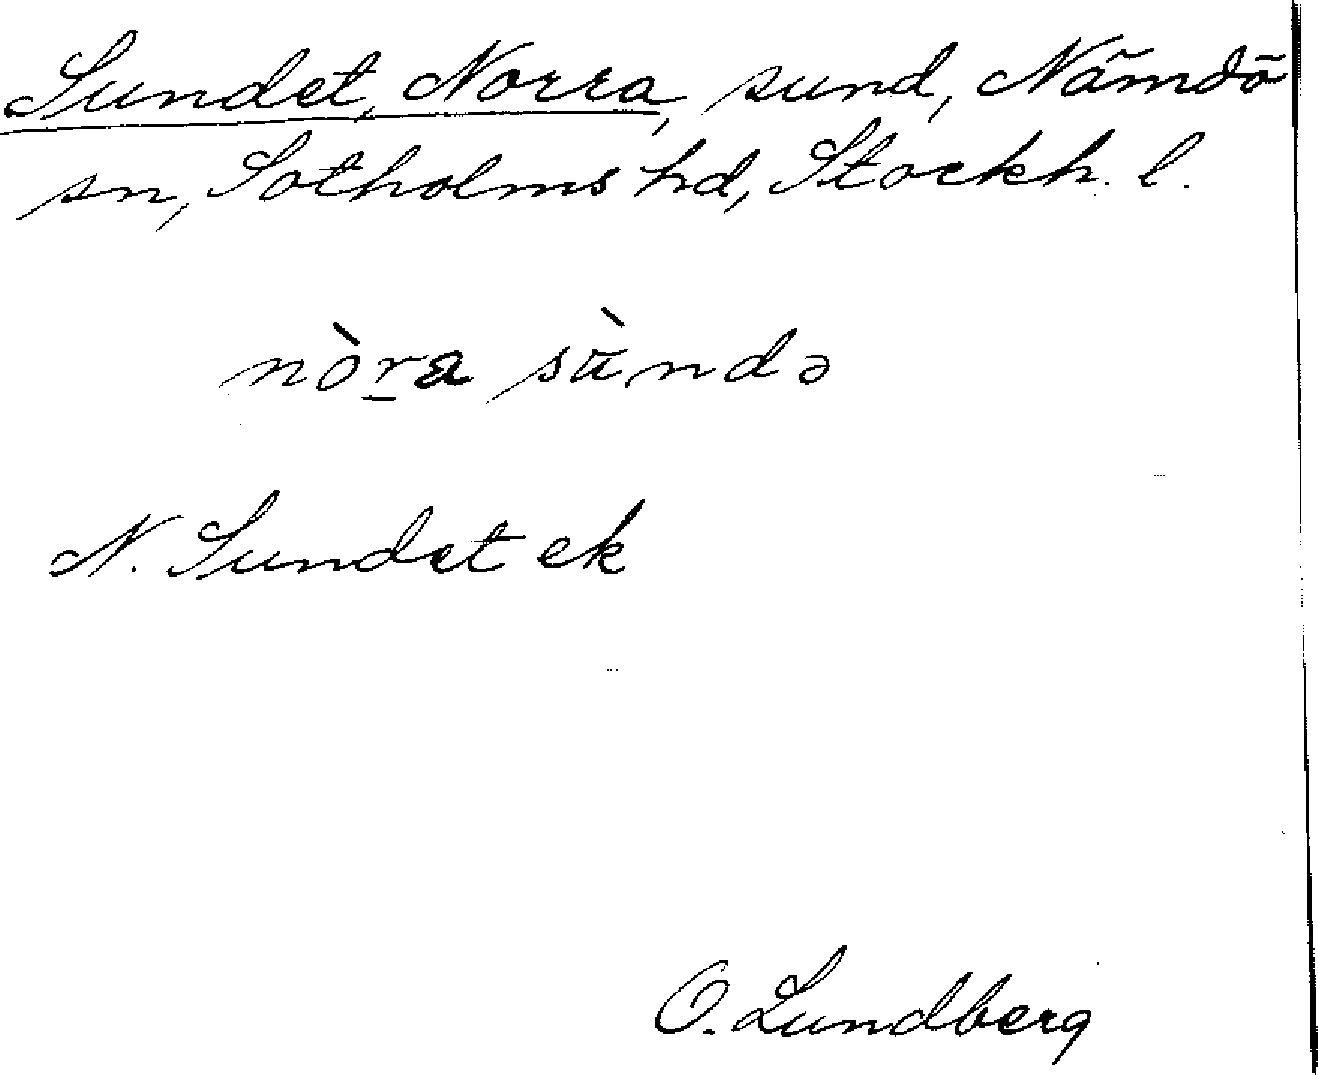 Sundet, Norra, sund, Nämdö
sn, Sotholms hd, Stockh. l.
nòr̲a sùndə
N. Sundet ek
O. Lundberg